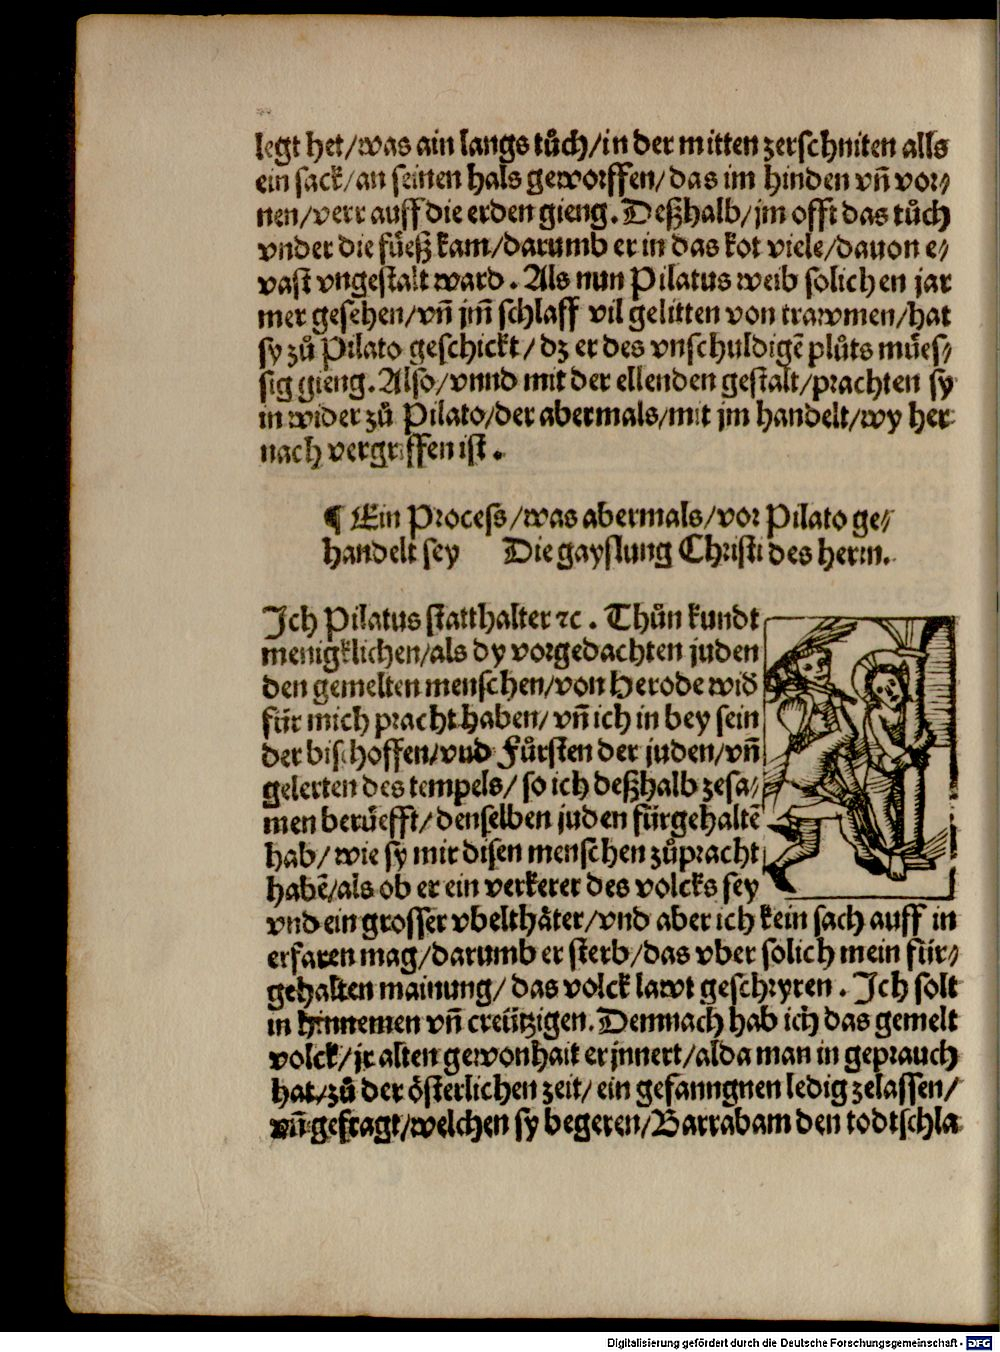 legt het/was ain langs tůch/in der mitten zerschniten alls
ein sack/an seinen hals geworffen/das im hinden vñ vor⸗
nen/verr auff die erden gieng. Deßhalb/jm offt das tůch
vnder die fůeß kam/darumb er in das kot viele/dauon e⸗
vast vngestalt ward. Als nun Pilatus weib solichen jar
mer gesehen/vñ jm̃ schlaff vil gelitten von trawmen/hat
sy zů Pilato geschickt/dz er des vnschuldigẽ plůts můes⸗
sig gieng. Also/vnnd mit der ellenden gestalt/prachten sy
in wider zů Pilato/der abermals/mit jm handelt/wy her
nach vergriffen ist.
¶ Ein Process/was abermals/vor Pilato ge⸗
handelt sey Die gayslung Christi des herrn.
Ich Pilatus statthalter ⁊c. Thůn kundt
menigklichen/als dy vorgedachten juden
den gemelten menschen/von Herode wid
für mich pracht haben/vñ ich in bey sein
der bischoffen/vnd Fůrsten der juden/vñ
gelerten des tempels/so ich deßhalb zesa⸗
men berůefft/denselben juden fürgehaltẽ
hab/wie sy mir disen menschen zůpracht
habẽ/als ob er ein verkerer des volcks sey
vnd ein grosser vbelthäter/vnd aber ich kein sach auff in
erfaren mag/darumb er sterb/das vber solich mein für⸗
gehalten mainung/das volck lawt geschryren. Ich solt
in hinnemen vñ creützigen. Demnach hab ich das gemelt
volck/jr alten gewonhait erjnnert/alda man in geprauch
hat/zů der österlichen zeit/ein gefanngnen ledig zelassen/
vñ gefragt/welchen sy begeren/Barrabam den todtschla
Digitalisierung gefördert durch die Deutsche Forschungsgemeinschaft - DFG